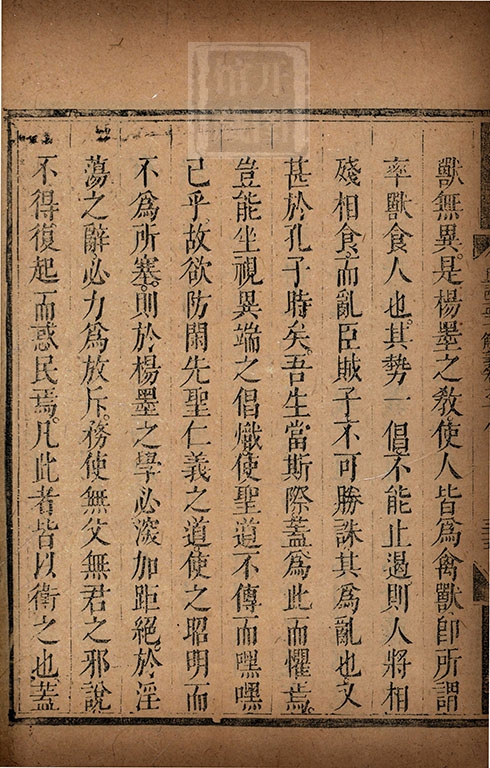 獸無異。是楊墨之教。使人皆為禽獸。卽所謂
率獸食人也。其勢一倡不能止遏。則人將相
殘相食。而亂臣賊子不可勝誅。其為亂也又
甚於孔子時矣。吾生當斯際。蓋為此而懼焉。
豈能坐視異端之倡熾。使聖道不傳而嘿嘿
已乎。故欲防閑先聖仁義之道。使之昭明而
不為所塞。則於楊墨之學必深加距絕。於淫
蕩之辭。必力為放斥。務使無父無君之邪說
不得復起而惑民焉。凡此者皆以衛之也。蓋